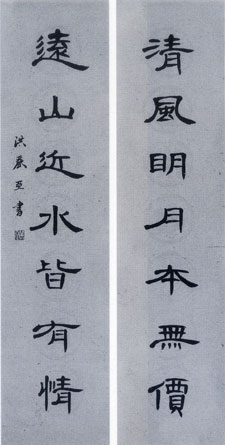 清風明月本無價
遠山近水皆有情
洪展亞書